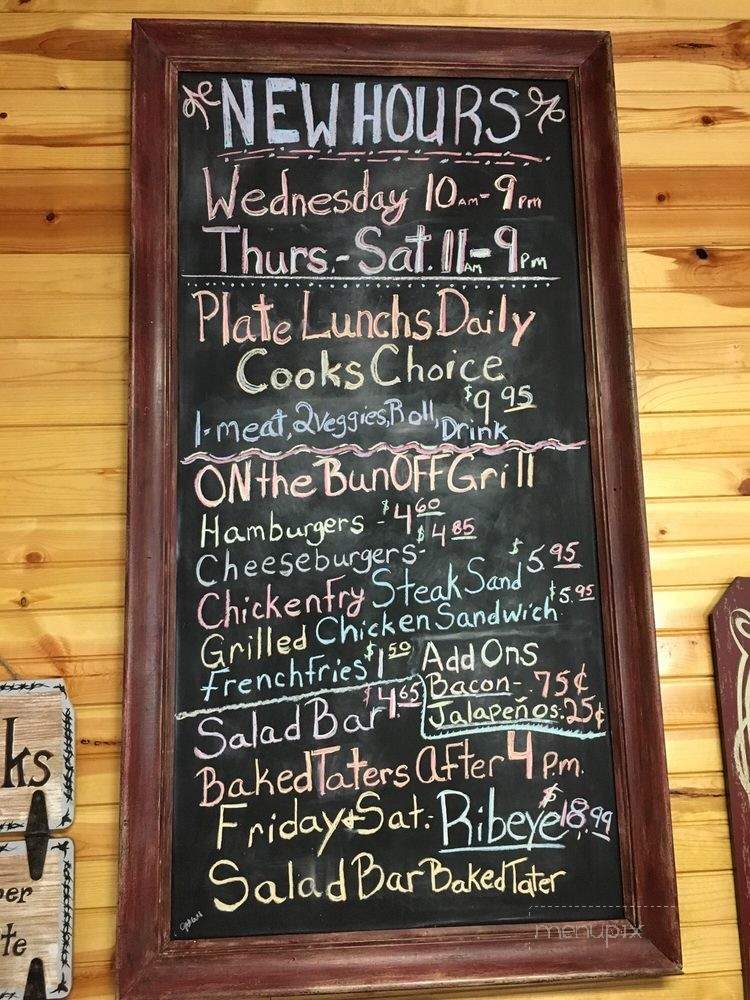 NEW HOURS
Wednesday 10 AM - 9 pm
Thurs.- Sat. 11 AM - 9 Pm
Plate Lunchs Daily
Cooks Choice
$9 95
1-meat, 2 veggies, Roll, Drink
ON the Bun OFF Grill
Hamburgers - $4 60
Cheeseburgers - $4 85
Chickenfry Steak Sand $5.95
Grilled Chicken Sandwich $5.95
frenchfries $1 50
Add Ons
Bacon - 75¢
Jalapeños. 25¢
Salad Bar $4.65
Baked Taters After 4 P.m.
Friday & Sat.- Ribeye $18.99
Salad Bar Baked Tater
ks
per
te
menupix